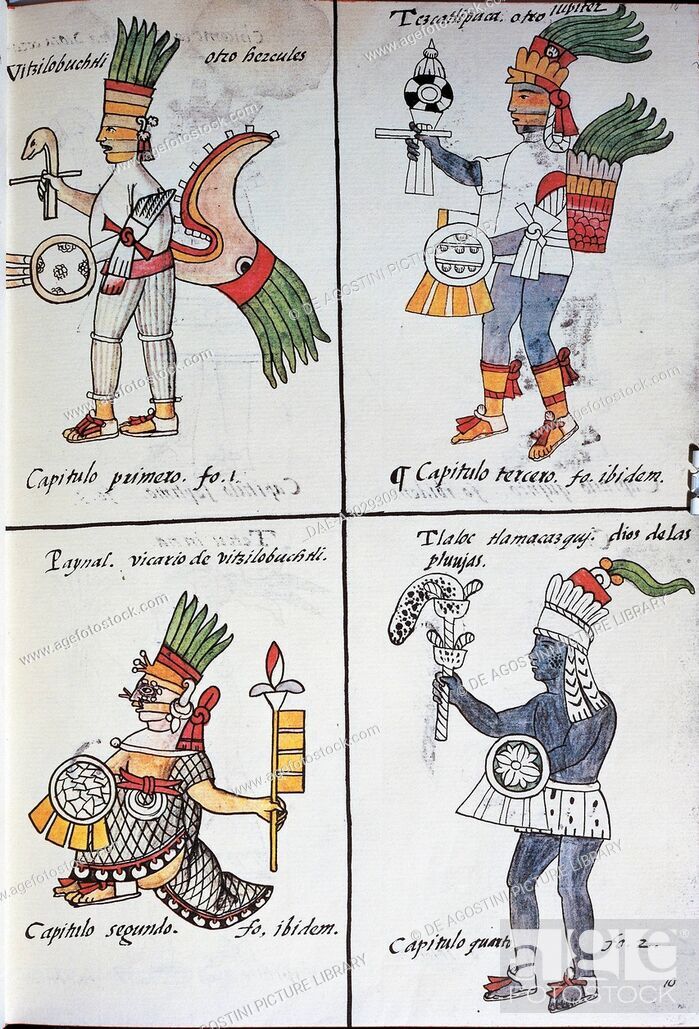 Vitzilobuchtli otro hercules
Capitulo primero. fo. 1.
Tezcatlipuca. otro Iubiter
¶ Capitulo tercero. fo. ibidem.
Paynal. vicario de vitzilobuchtli.
Capitulo segundo. fo, ibidem.
Tlaloc tlamacazquj. dios de las
pluuias.
Capitulo quarto fo. 2.
10
www.agefotostock.com
© DE AGOSTINI PICTURE LIBRARY
age
FOTOSTOCK